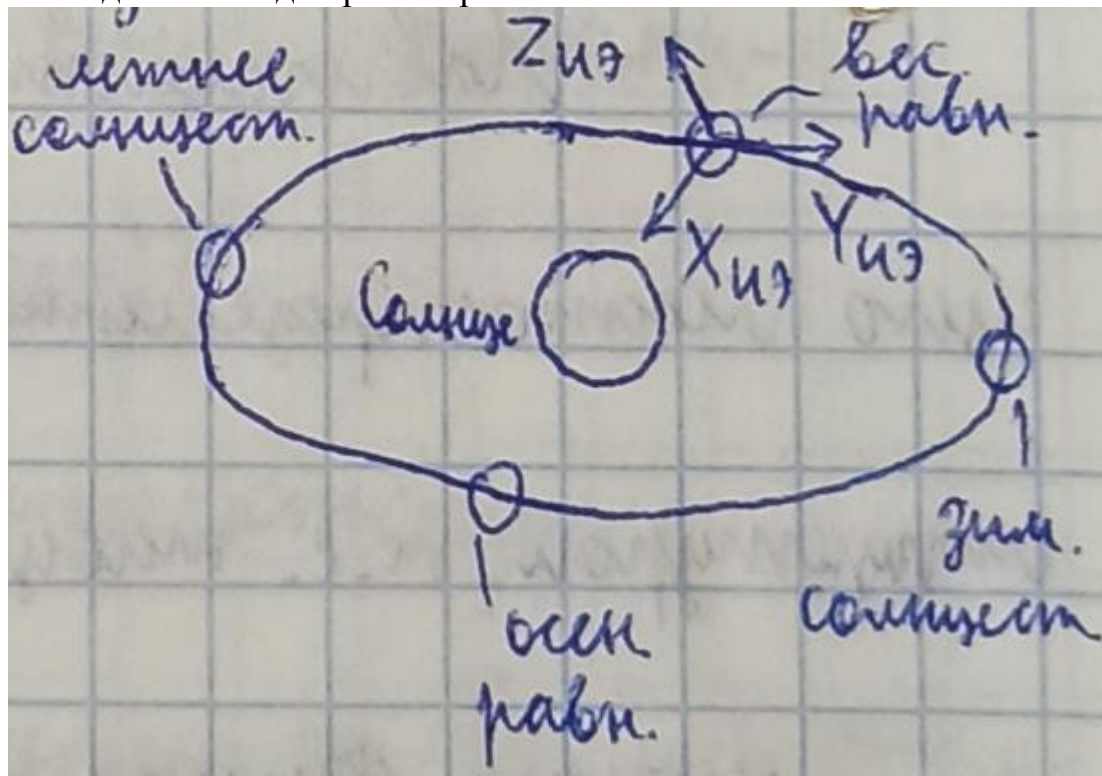 летнее
солнцест.
Zиэ
вес.
равн.
Xиэ
Yиэ
Солнце
зим.
солнцест
осен.
равн.